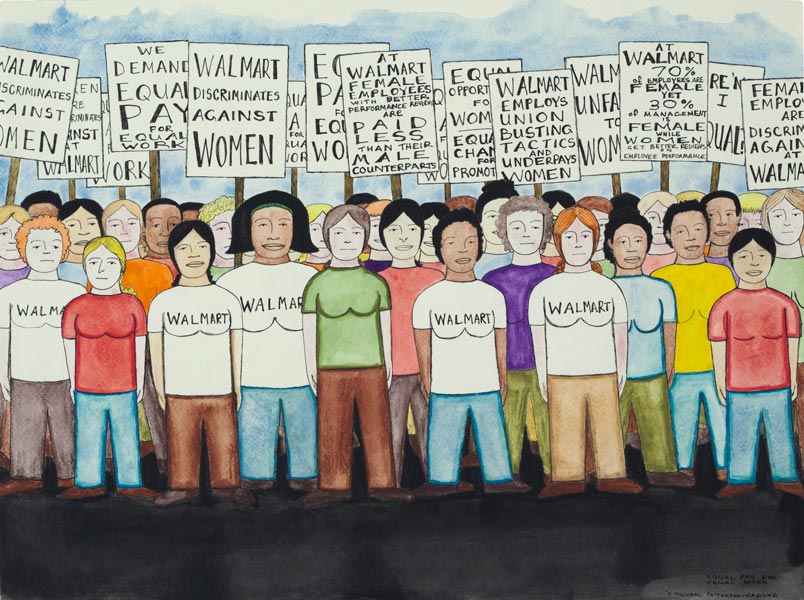 WALMART
DISCRIMINATES
AGAINST
WOMEN
AT
WALMART
WE
DEMAND
EQUAL
PAY
FOR
EQUAL
WORK
WORK
WALMART
DISCRIMINATES
AGAINST
WOMEN
FOR
EQ
PA
FO
EQU
WO
AT
WALMART
FEMALE
EMPLOYEES
WITH BETTER
PERFORMANCE REVIEWS
ARE
PAID
LESS
THAN THEIR
MALE
COUNTERPARTS
EQU
OPPORT
FO
WOM
EQUA
CHAN
FOR
PROMOT
WALMART
EMPLOYS
UNION
BUSTING
TACTICS
AND
UNDERPAYS
WOMEN
WALM
UNFA
TO
WOM
AT
WALMART
70%
OF EMPLOYEES ARE
FEMALE
YET
30%
OF MANAGEMENT
IS
FEMALE
WHILE
WOMEN
GET BETTER REVIEWS
IN
EMPLOYEE PERFORMANCE
RE'N
I
QUAL
FEMAL
EMPLO
ARE
DISCRIM
AGAIN
AT
WALMA
WALMA
WALMART
WALMART
WALMART
WALMART
EQUAL PAY FOR
EQUAL WORK
'11 MICHAEL PATTERSON-CARVER